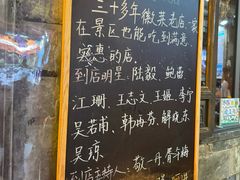 三十多年徽菜老店一家
在景区也能吃到满意
实惠的店.
到店明星:陆毅 鲍蕾
江珊、王志文、王姬、李宁
吴若甫、韩海芳、解晓东
吴琼
到店主持人:敬一丹、